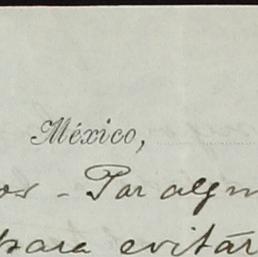 México,
os - Por algun
para evitár